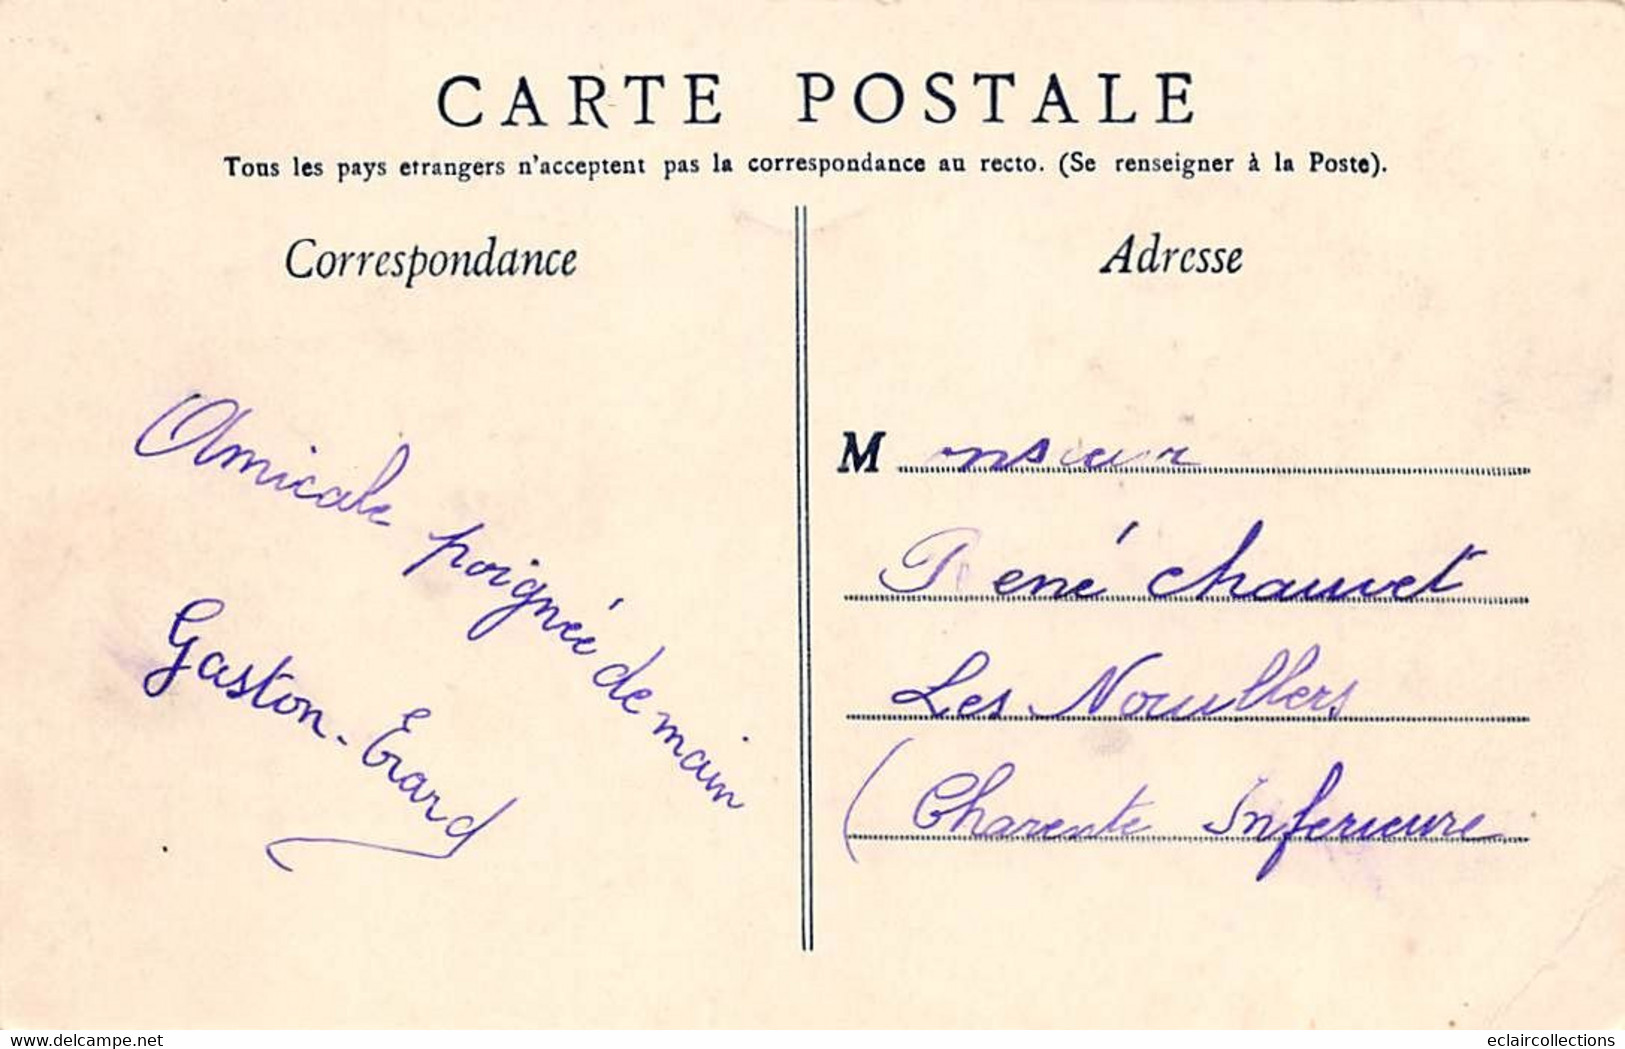 CARTE POSTALE
Tous les pays etrangers n'acceptent pas la correspondance au recto. (Se renseigner à la Poste).
Correspondance
Amicale poignée de main
Gaston-Erard
Adresse
Monsieur
René Chauvet
Les Nouillers
(Charente Inferieure
www.delcampe.net
eclaircollections